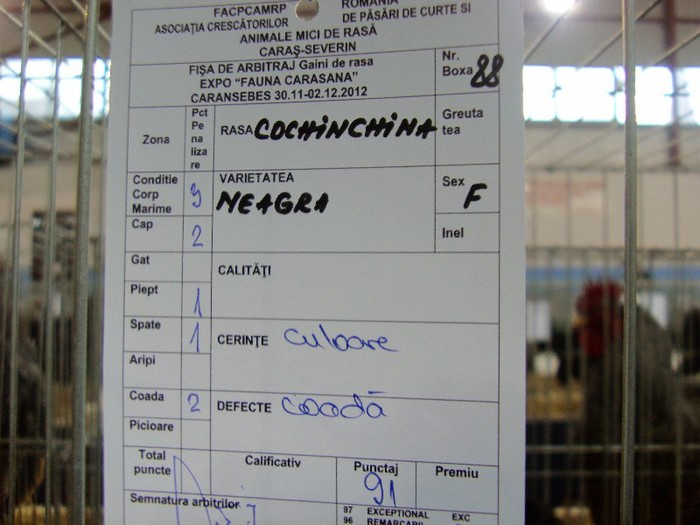 FACPCAMRP
ROMÂNIA
ASOCIAȚIA CRESCĂTORILOR DE PĂSĂRI DE CURTE SI
ANIMALE MICI DE RASĂ
CARAȘ-SEVERIN
FIȘA DE ARBITRAJ Gaini de rasa
EXPO "FAUNA CARASANA"
CARANSEBES 30.11-02.12.2012
Nr.
Boxa 88
Zona
Pct
Pe
na
liza
re
RASA COCHINCHINA
Greuta
tea
Conditie
Corp
Marime
3
VARIETATEA
NEAGRA
Sex
F
Cap
2
Inel
Gat
CALITĂȚI
Piept
1
Spate
1
CERINȚE culoare
Aripi
Coada
2
DEFECTE coadă
Picioare
Total
puncte
Calificativ
Punctaj
91
Premiu
Semnatura arbitrilor
97 EXCEPTIONAL EXC
96 REMARCABIL